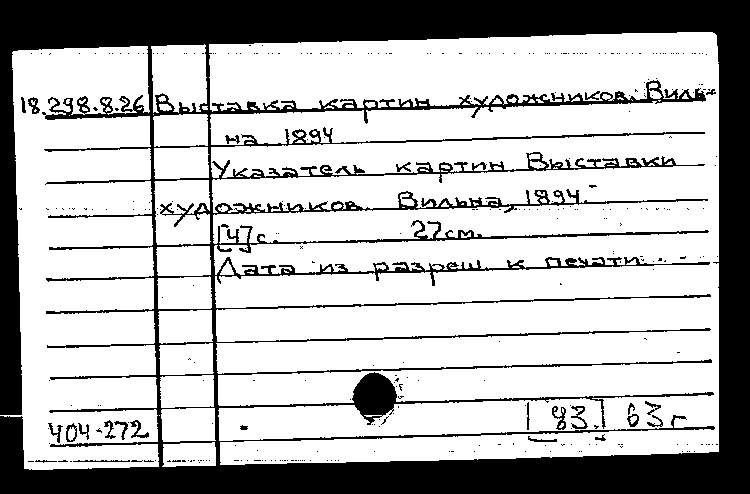 18.298.8.26 Выставка картин художников. Виль-
на. 1894
Указатель картин Выставки
художников. Вильна, 1894.-
[4]с. 27см.
Дата из разреш. к печати.
404-272 [83.] 63г